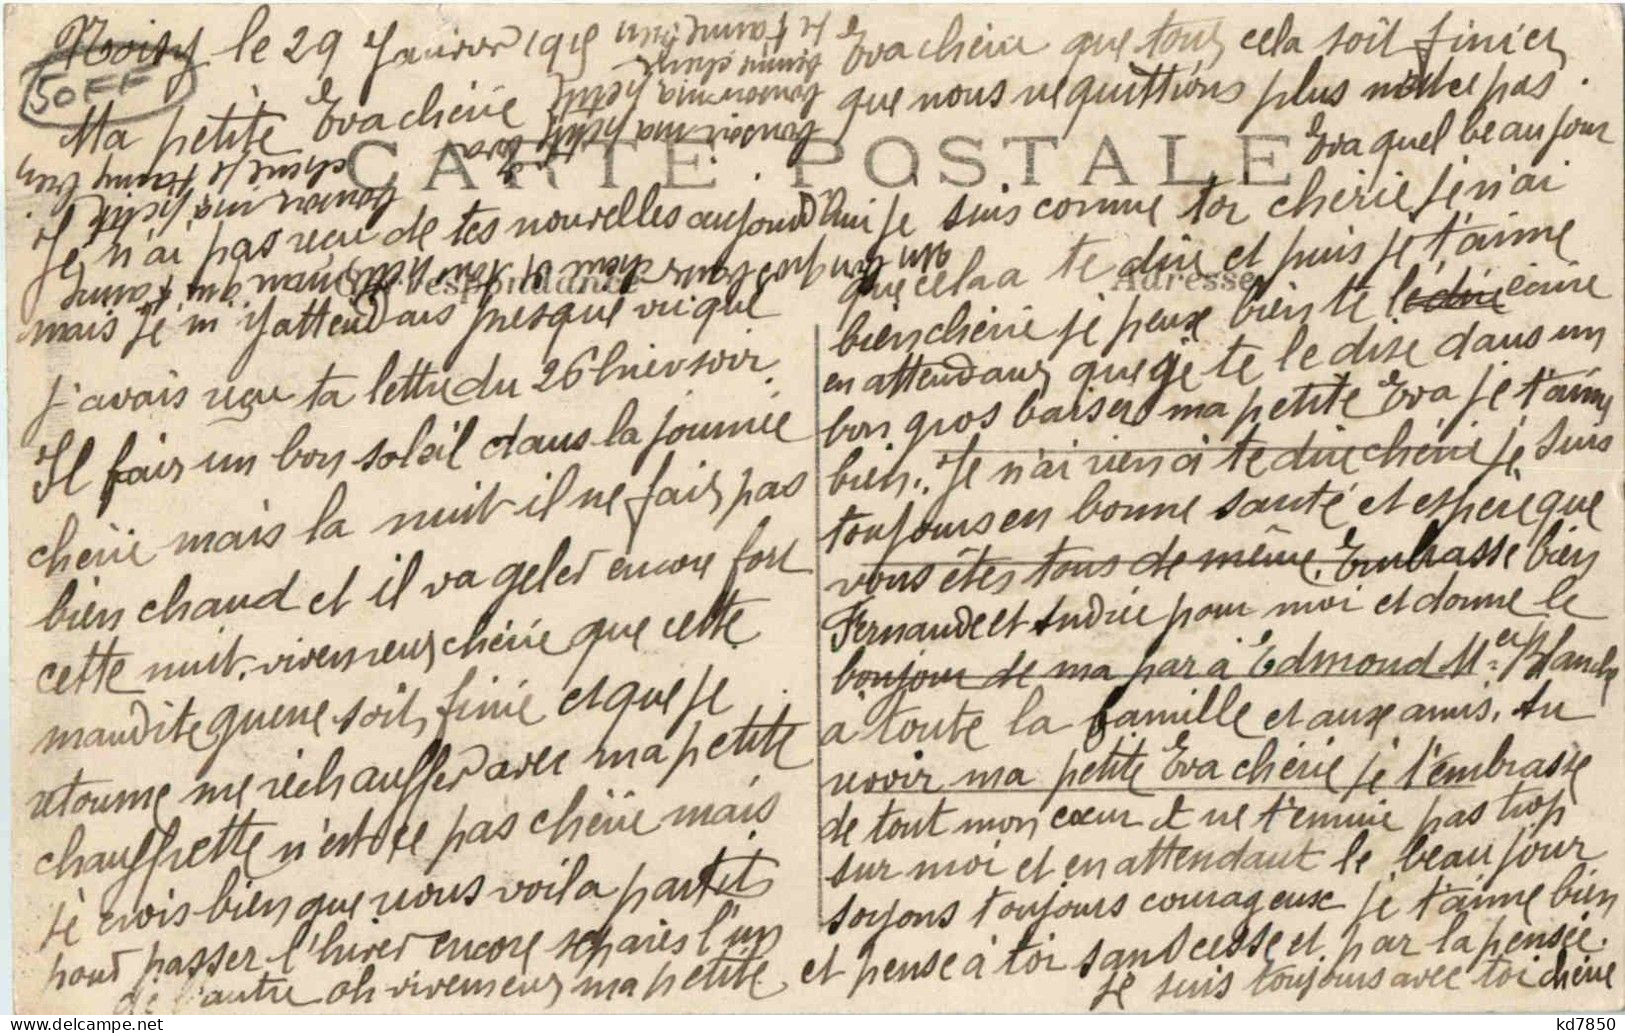 Noisy le 29 Janvier 1915
50FF
Ma petite Eva chérie
CARTE POSTALE
Correspondance
Adresse
Je n'ai pas reçu de tes nouvelles aujourd'hui
mais je m'y attendais presque vu que
j'avais reçu ta lettre du 26 hier soir.
Il fais un bon soleil dans la journée
chérie mais la nuit il ne fais pas
bien chaud et il va geler encore fort
cette nuit. vivement chérie que cette
maudite guerre soit finie et que je
retourne me réchauffer avec ma petite
chauffrette n'est ce pas chérie mais
je crois bien que nous voila partit
pour passer l'hiver encore séparés l'un
de l'autre oh vivement ma petite
Eva chérie que tous cela soit finies
que nous ne quittions plus n'est ce pas.
Eva quel beau jour
je suis comme toi chérie je n'ai
que cela a te dire et puis je t'aime
bien chérie je peux bien te le dire écrire
en attendant que je te le dise dans un
bon gros baiser ma petite Eva je t'aime
bien. Je n'ai rien à te dire chérie je suis
toujours en bonne santé et espère que
vous êtes tous de même. Embrasse bien
Fernande et Andrée pour moi et donne le
bonjour de ma par à Edmond M. et Blanche
à toute la famille et aux amis. Au
revoir ma petite Eva chérie je t'embrasse
de tout mon cœur et ne t'ennuie pas trop
sur moi et en attendant le beau jour
soyons toujours courageux je t'aime bien
et pense à toi sans cesse et par la pensée.
je suis toujours avec toi chérie
kd7850